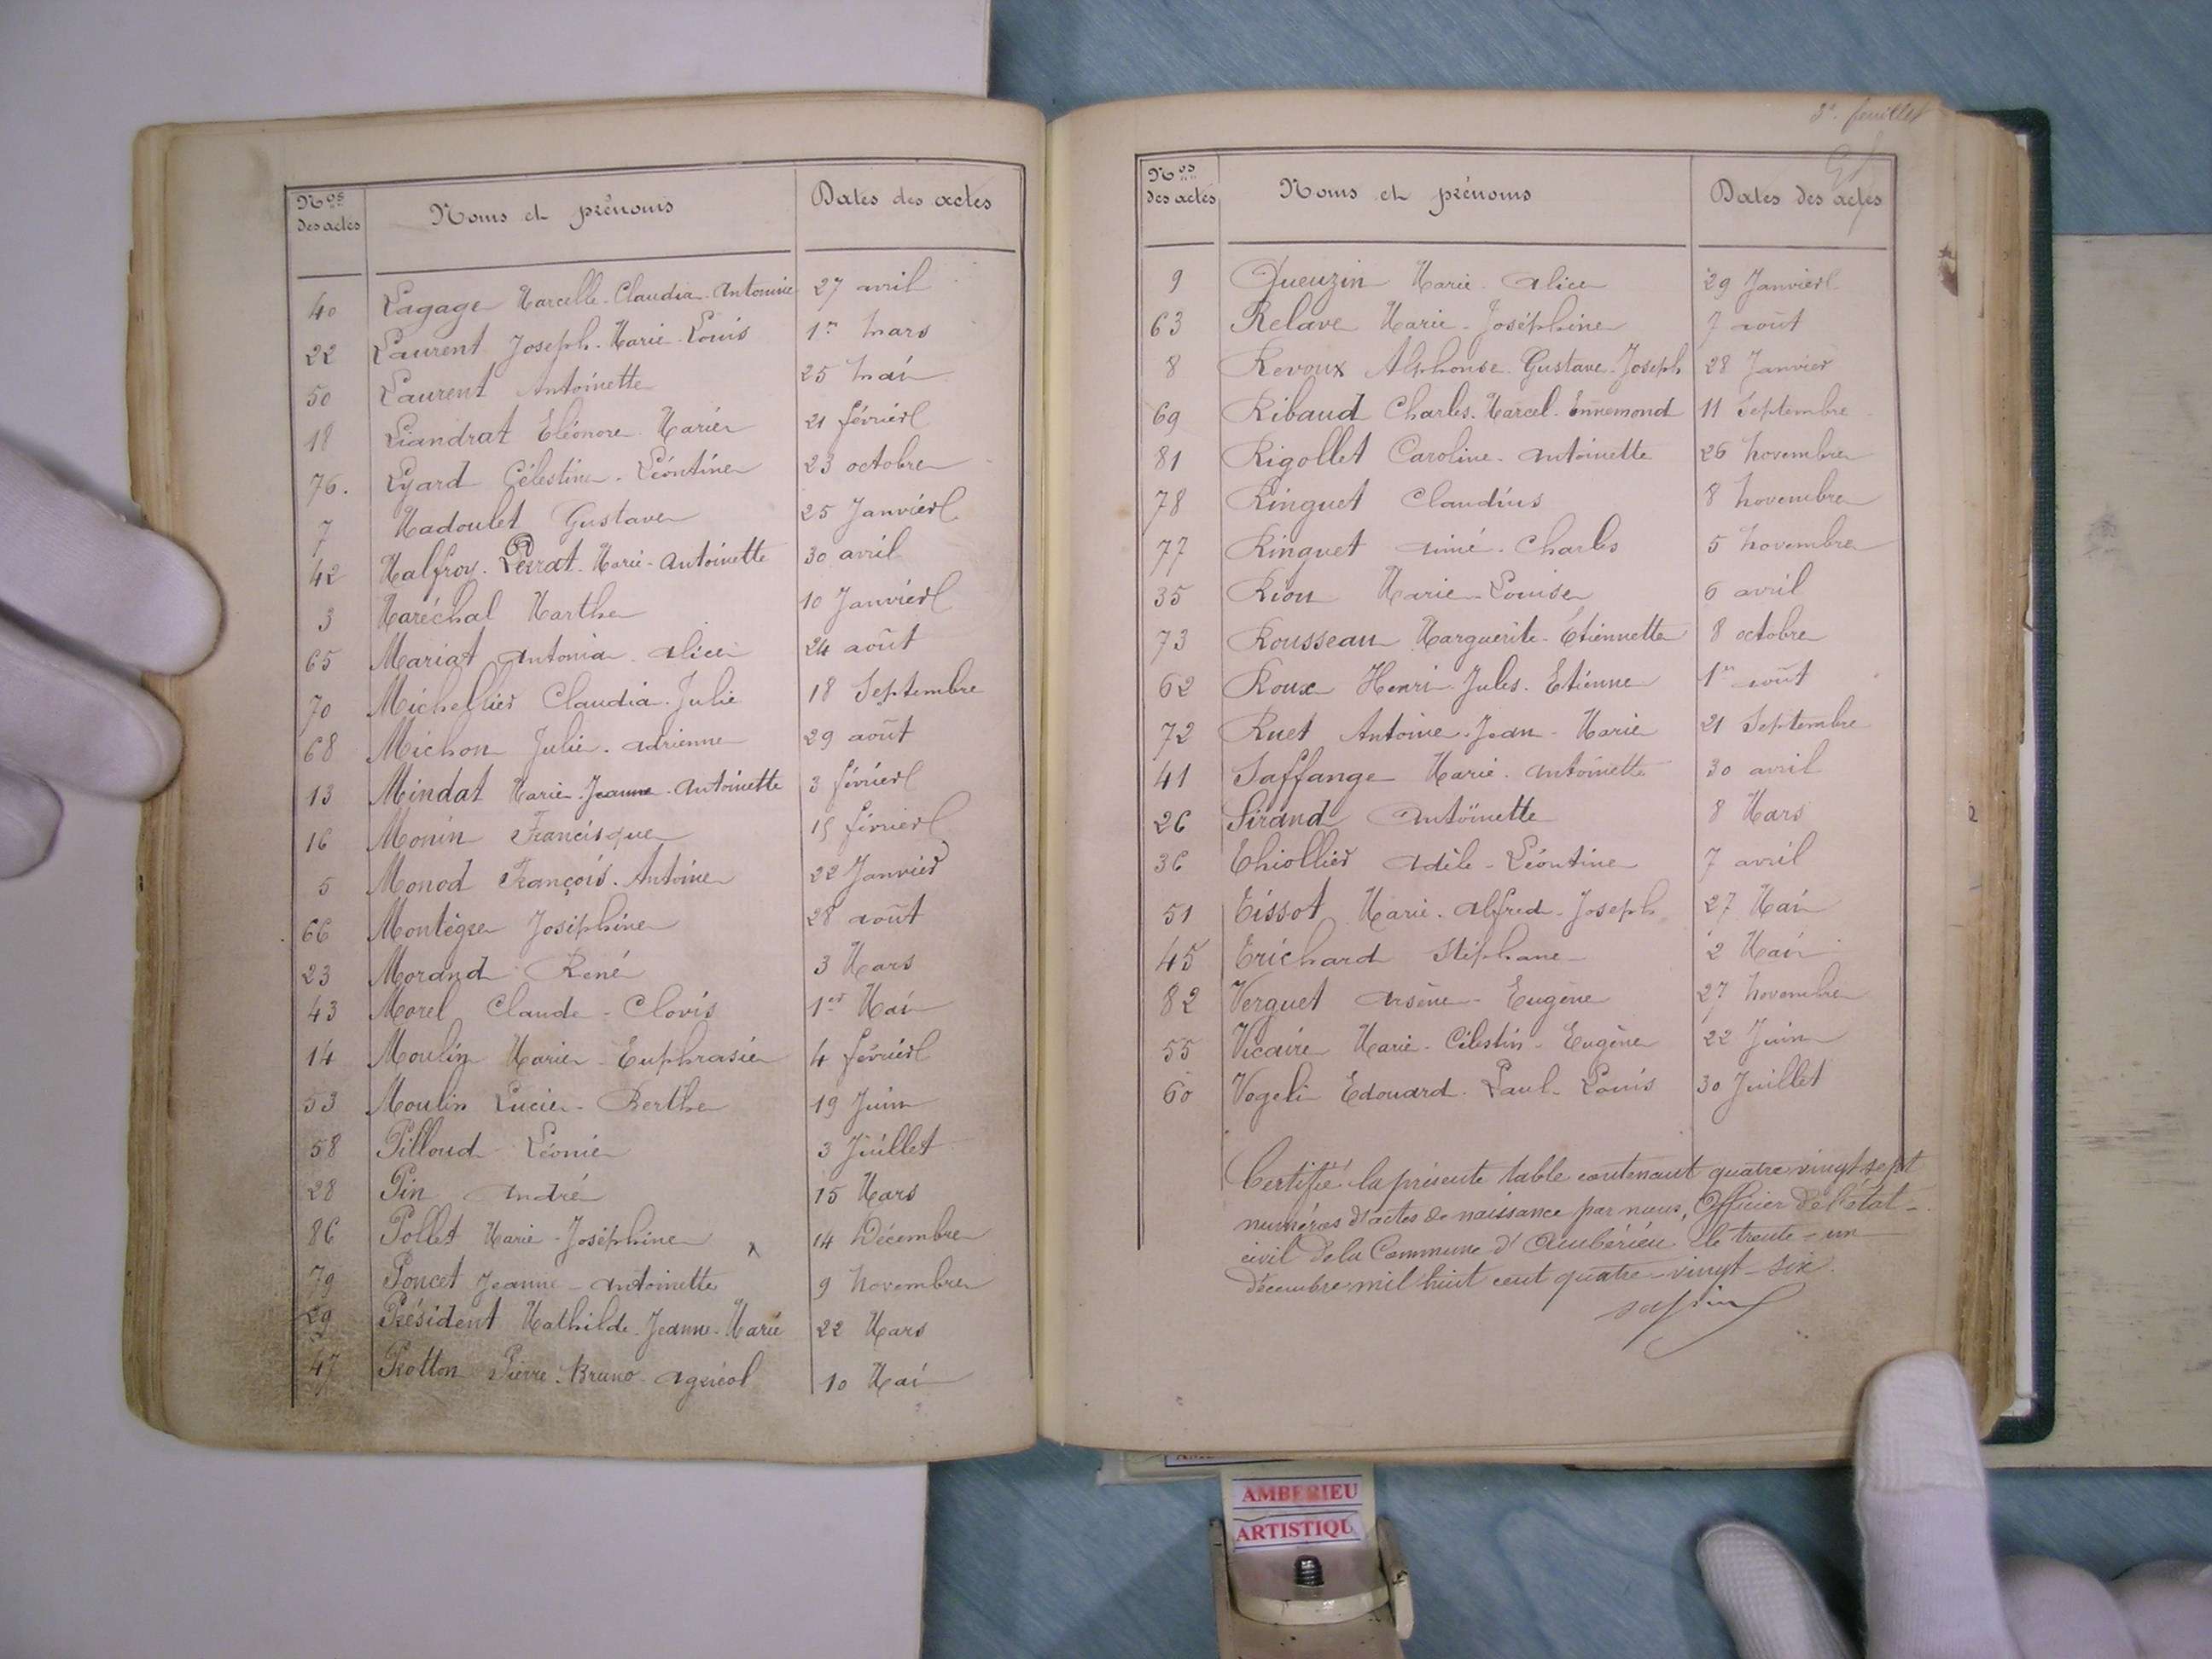 Nos des actes Noms et prénoms Dates des actes
40 Lagage Marcelle-Claudia-Antonine 27 avril
22 Laurent Joseph-Marie-Louis 1er mars
50 Laurent Antoinette 25 mai
18 Liandrat Eléonore-Marie 21 février
76. Lyard Célestine-Léontine 23 octobre
7 Madoulet Gustave 25 Janvier
42 Malfroy-Perrat-Marie-Antoinette 30 avril
3 Maréchal Marthe 10 Janvier
65 Mariat Antonia-Alice 24 août
70 Michellier Claudia-Julie 18 Septembre
68 Michon Julie-Adrienne 29 août
13 Mindat Marie-Jeanne-Antoinette 3 février
16 Monin Francisque 15 février
5 Monod François-Antoine 22 Janvier
66 Montègre Joséphine 28 août
23 Morand René 3 Mars
43 Morel Claude-Clovis 1er Mai
14 Moulin Marie-Euphrasie 4 février
53 Moulin Lucie-Berthe 19 Juin
58 Pilloud Léonie 3 Juillet
28 Pin André 15 Mars
86 Pollet Marie-Joséphine 14 Décembre
79 Poncet Jeanne-Antoinette 9 novembre
29 Président Mathilde-Jeanne-Marie 22 Mars
47 Protton Pierre-Bruno-Agricol 10 Mai
3e feuillet
Nos des actes Noms et prénoms Dates des actes
9 Queuzin Marie-Alice 29 Janvier
63 Relave Marie-Joséphine 7 août
8 Revoux Alphonse-Gustave-Joseph 28 Janvier
69 Ribaud Charles-Marcel-Ennemond 11 Septembre
81 Rigollet Caroline-Antoinette 26 novembre
78 Ringuet Claudius 8 novembre
77 Ringuet Aimé-Charles 5 novembre
35 Rion Marie-Louise 6 avril
73 Rousseau Marguerite-Étiennette 8 octobre
62 Roux Henri-Jules-Etienne 1er août
72 Ruet Antoine-Jean-Marie 21 Septembre
41 Saffange Marie-Antoinette 30 avril
26 Sirand Antoinette 8 Mars
36 Thiollier Adèle-Léontine 7 avril
51 Tissot Marie-Alfred-Joseph 27 Mai
45 Trichard Stéphane 2 Mai
82 Verguet Arsène-Eugène 27 novembre
55 Vicaire Marie-Célestin-Eugène 22 Juin
60 Vogeli Edouard-Paul-Louis 30 Juillet
Certifié la présente table contenant quatre-vingt-sept
numéros d'actes de naissance par nous, Officier de l'état-
civil de la Commune d'Ambérieu le trente-un
décembre mil huit cent quatre-vingt-six.
AMBERIEU
ARTISTIQU